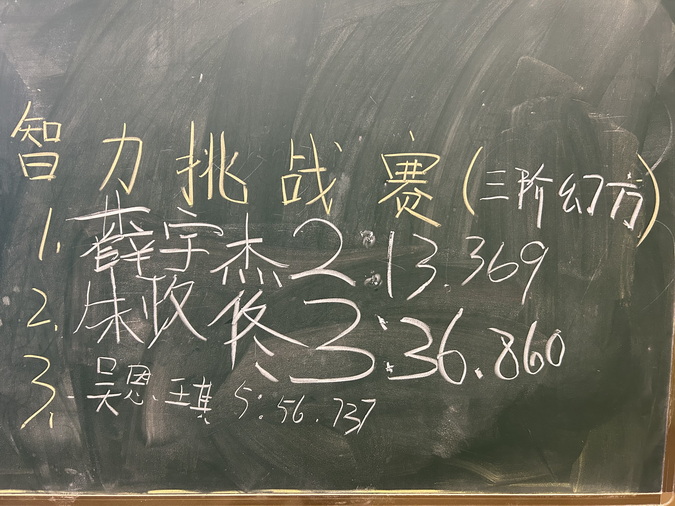 智力挑战赛(三阶幻方)
1. 薛宇杰 2:13.369
2. 朱牧佟 3:36.860
3. 吴恩琪 5:56.737